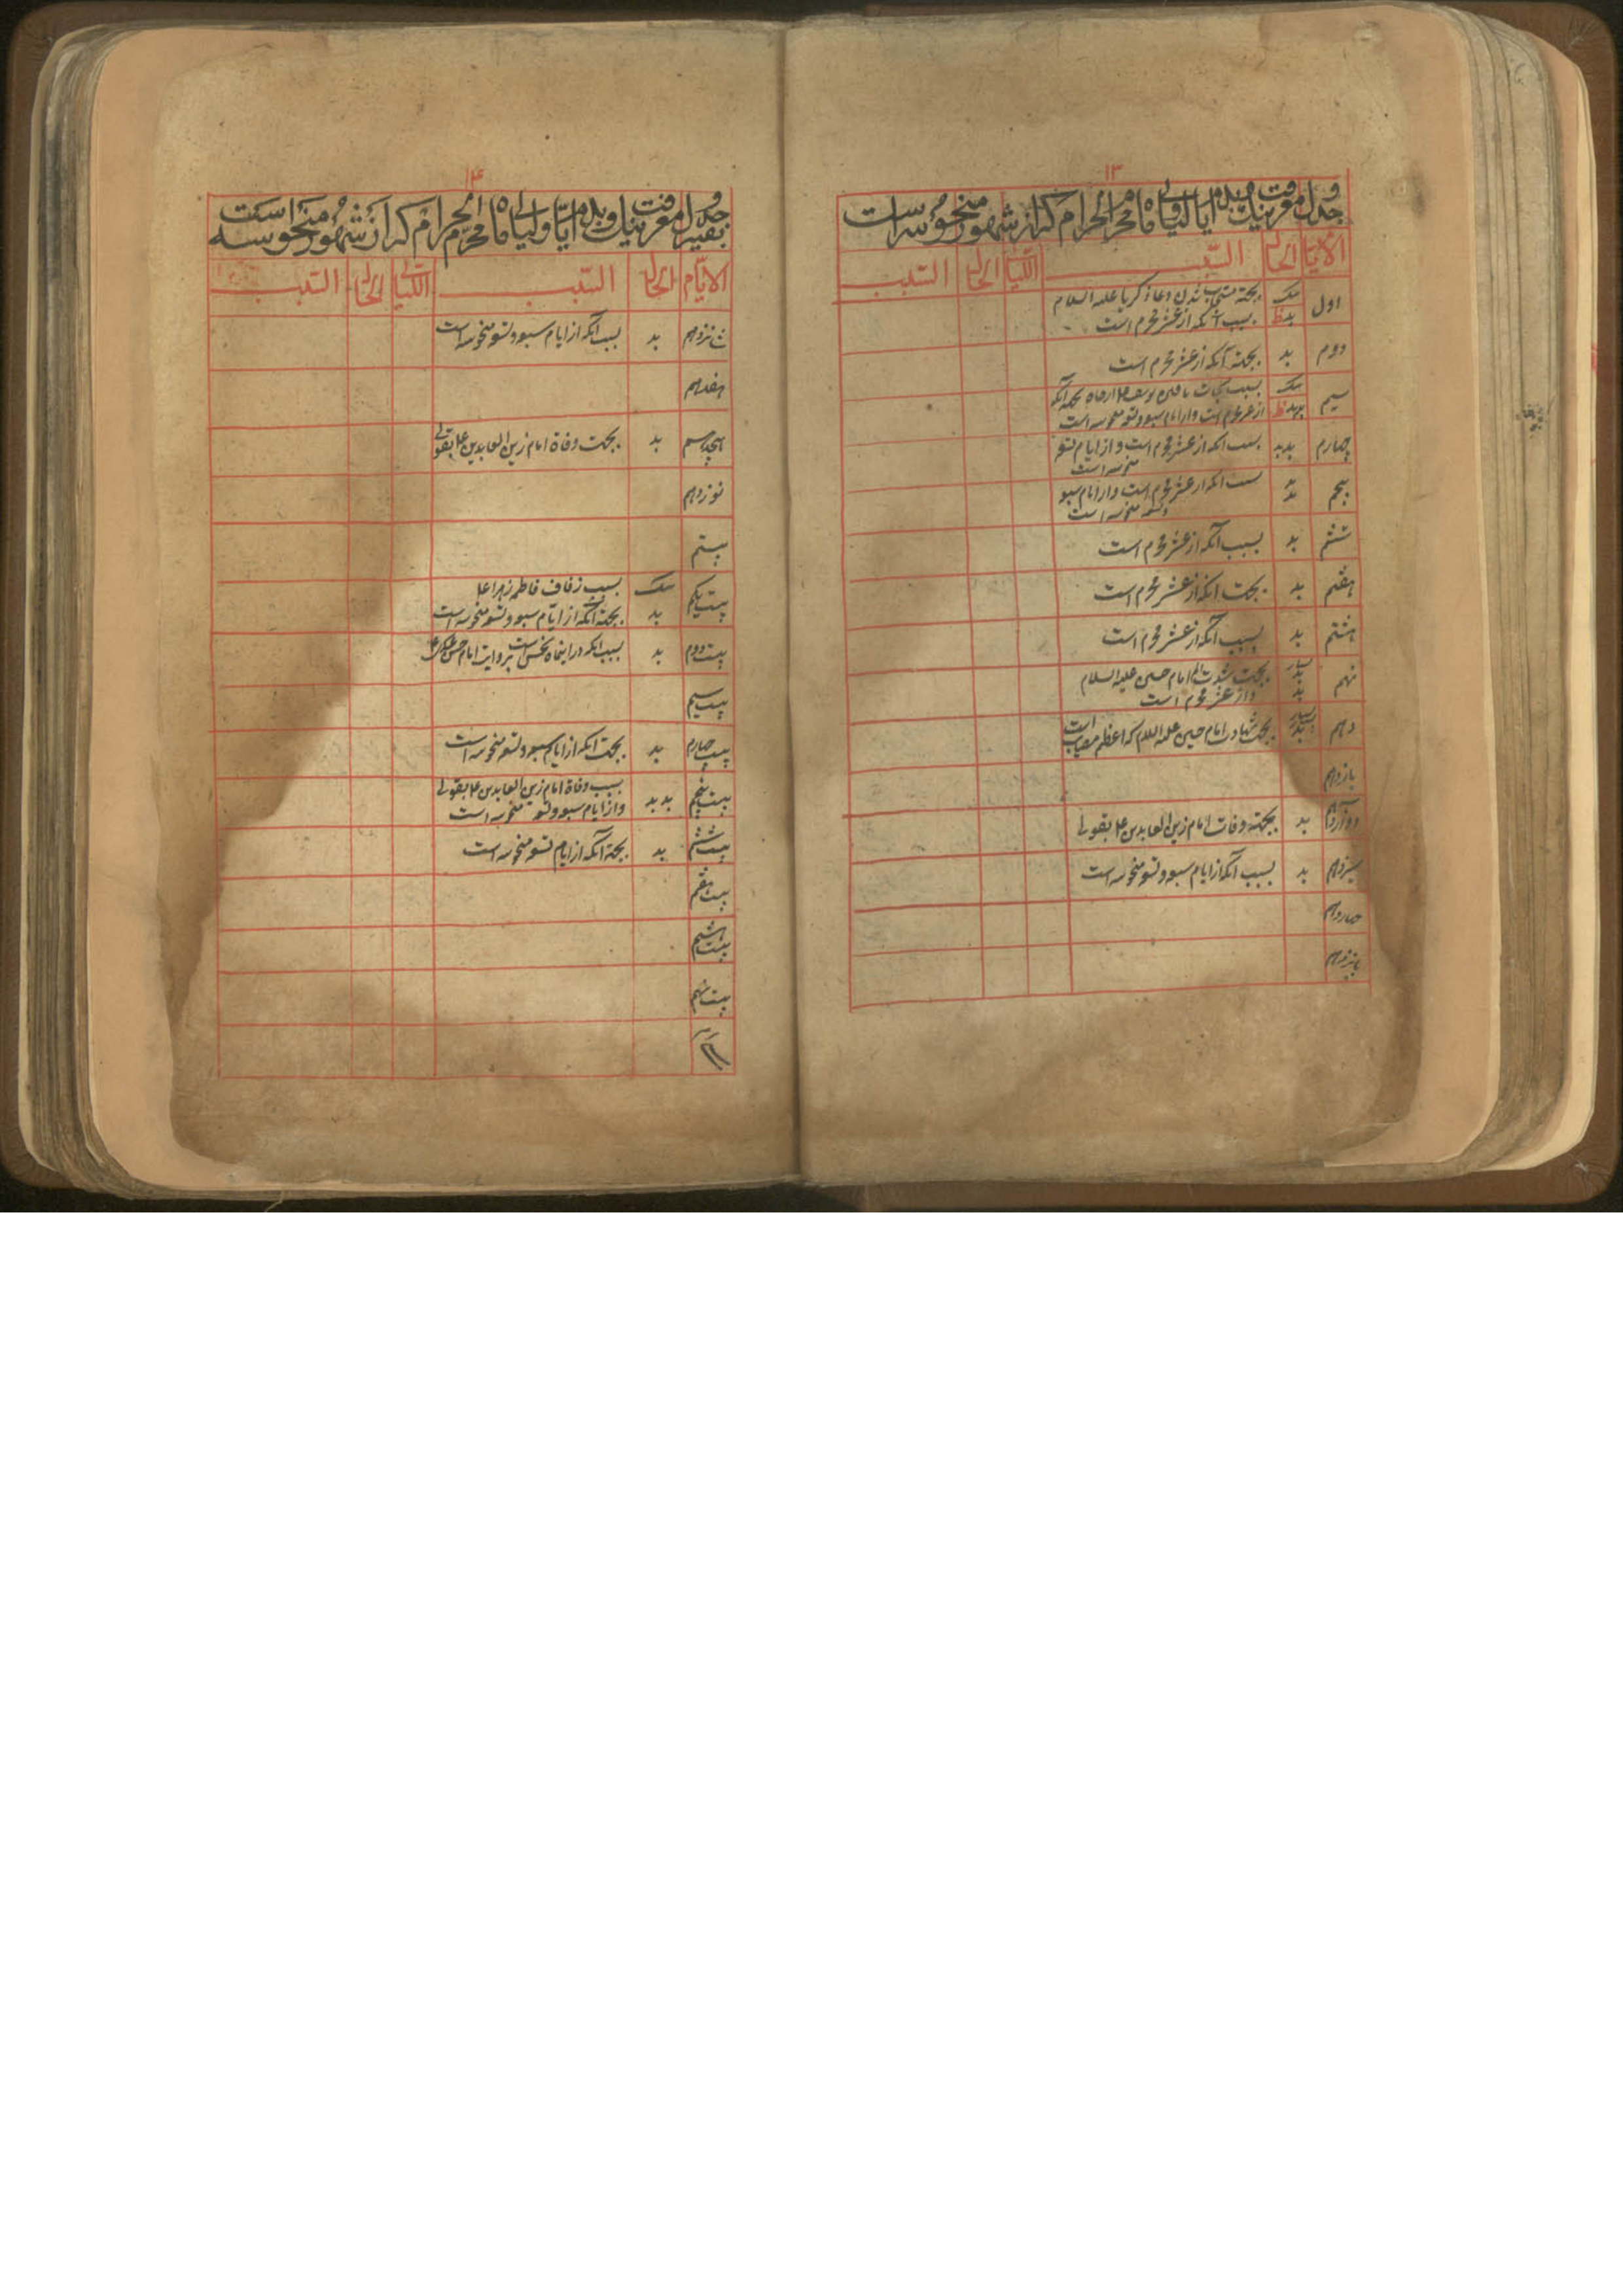 ۱۳
جدول معرفت نیک و بد ایام و لیالی ماه محرم الحرام که از شهور منحوسه است
الایام الحال السبب اللیالی الحال السبب
اول نیک بجهة مستجاب شدن دعاء زکریا علیه السلام
بد بسبب آنکه از عشر محرم است
دوم بد بجهة آنکه از عشر محرم است
سیم نیک بسبب نجات یافتن یوسف ع از چاه بجهة آنکه
بد از عشر محرم است و از ایام سبو و تسو منحوسه است
چهارم بد بد بسبب انکه از عشر محرم است و از ایام تسو
منحوسه است
پنجم بد بد بسبب انکه از عشر محرم است و از ایام سبو
و تسو منحوسه است
ششم بد بسبب آنکه از عشر محرم است
هفتم بد بجهت انکه از عشر محرم است
هشتم بد بسبب آنکه از عشر محرم است
نهم بسیار بد بد بجهت شدت الم امام حسین علیه السلام
و از عشر محرم است
دهم بسیار بد بجهت شهادت امام حسین علیه السلام که اعظم مصایب است
یازدهم
دوازدهم بد بجهة وفات امام زین العابدین ع بقولی
سیزدهم بد بسبب آنکه از ایام سبو و تسو منحوسه است
چهاردهم
پانزدهم
۱۴
بقیه جدول معرفت نیک و بد ایام و لیالی ماه محرم الحرام که از شهور منحوسه است
الایام الحال السبب اللیالی الحال السبب
شانزدهم بد بسبب آنکه از ایام سبو و تسو منحوسه است
هفدهم
هیجدهم بد بجهت وفاة امام زین العابدین ع بقولی
نوزدهم
بیستم
بیست یکم نیک بسبب زفاف فاطمه زهرا ع
بد بجهة آنکه از ایام سبو و تسو منحوسه است
بیست دوم بد بسبب انکه در اینماه نحس است بروایت امام حسن عسکری ع
بیست سیم
بیست چهارم بد بجهت آنکه از ایام سبو و تسو منحوسه است
بیست پنجم بد بد بسبب وفاة امام زین العابدین ع بقولی
و از ایام سبو و تسو منحوسه است
بیست ششم بد بجهة آنکه از ایام تسو منحوسه است
بیست هفتم
بیست هشتم
بیست نهم